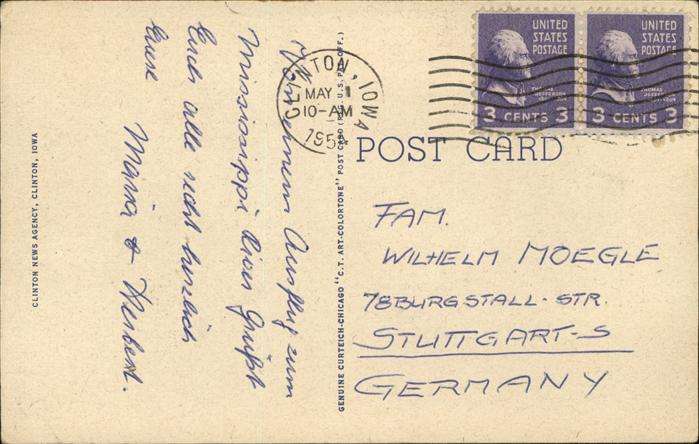 UNITED
STATES
POSTAGE
THOMAS
JEFFERSON
3 CENTS 3
UNITED
STATES
POSTAGE
THOMAS
JEFFERSON
3 CENTS 3
CLINTON, IOWA
MAY
10-AM
195
POST CARD
FAM.
WILHELM MOEGLE
78 BURGSTALL-STR.
STUTTGART-S
GERMANY
Ausflug zum
Mississippi River grüßt
Euch alle recht herzlich
Eure
Maria & Herbert.
GENUINE CURTEICH-CHICAGO "C.T. ART-COLORTONE" POST CARD (REG. U.S. PAT. OFF.)
CLINTON NEWS AGENCY, CLINTON, IOWA